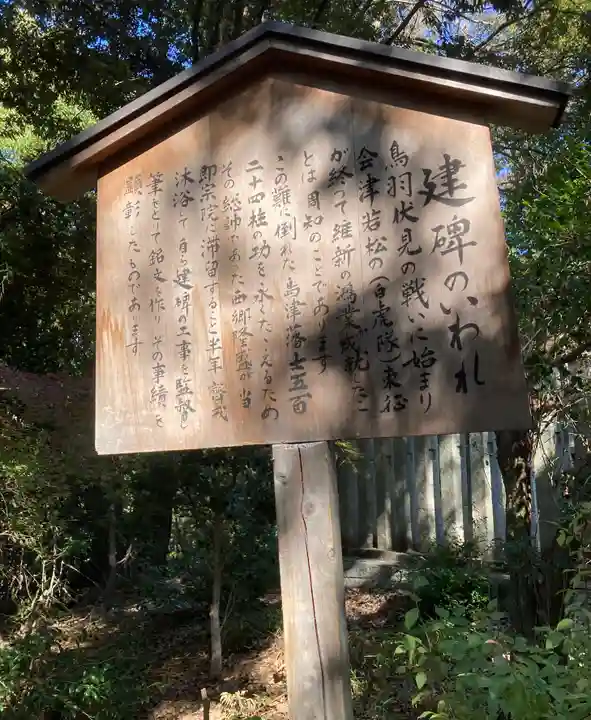 建碑のいわれ
鳥羽伏見の戦いに始まり
会津若松の(白虎隊)東征
が終って維新の鴻業が成就したこ
とは周知のことであります
この難に倒れた島津藩士五百
二十四柱の功を永くたたえるため
その総帥であった西郷隆盛が当
即宗院に滞留すること半年 斎戒
沐浴して自ら建碑の工事を監督し
筆をとって銘文を作り その事績を
顕彰したものであります